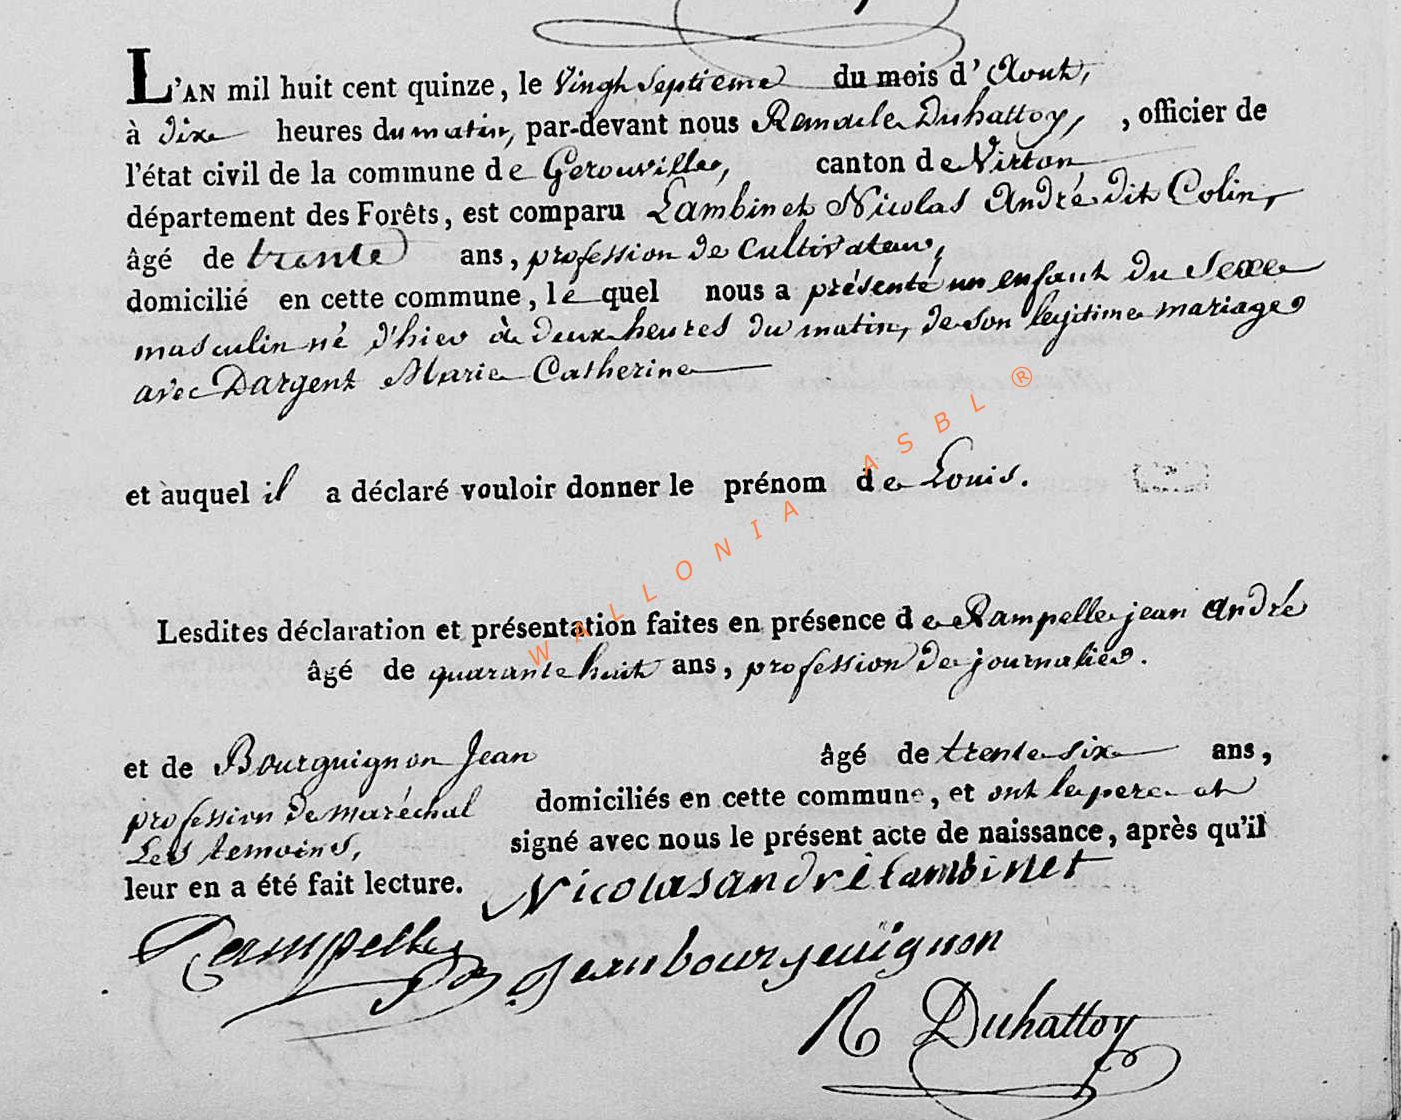 L'AN mil huit cent quinze, le Vingt Septieme du mois d'Aout,
à dixe heures du matin, par-devant nous Remacle Duhattoy, , officier de
l'état civil de la commune de Gerouville, canton de Virton
département des Forêts, est comparu Lambinet Nicolas André dit Colin,
âgé de trente ans, profession de Cultivateur,
domicilié en cette commune, le quel nous a présenté un enfant du Sexe
masculin né d'hier à deux heures du matin, de son legitime mariage
avec Dargent Marie Catherine
et auquel il a déclaré vouloir donner le prénom de Louis.
Lesdites déclaration et présentation faites en présence de Rampelle jean André
âgé de quarante huit ans, profession de journalier.
et de Bourguignon Jean âgé de trente six ans,
profession de maréchal domiciliés en cette commune, et ont le pere et
Les temoins, signé avec nous le présent acte de naissance, après qu'il
leur en a été fait lecture. Nicolas andré lambinet
Rampelle Jean bourgeuignon
R Duhattoy
WALLONIA ASBL ®